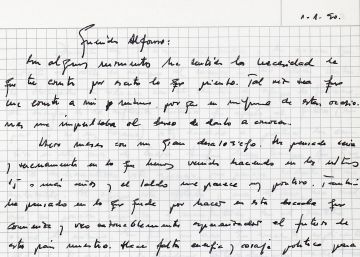 1-1-90.
Querido Alfonso:
En algunos momentos he sentido la necesidad de
que te conste por escrito lo que pienso. Tal vez sea para
me conste a mí mismo, porque en ninguna de estas ocasio-
nes me impulsaba el deseo de darlo a conocer.
Llevo meses con un gran desasosiego. He pensado seria
y serenamente en lo que hemos venido haciendo en los últimos
15 o más años y el saldo me parece muy positivo. También
he pensado en lo que queda por hacer en esta década que
comienza y veo extraordinariamente esperanzador el futuro de
este país nuestro. Hace falta energía y coraje político para